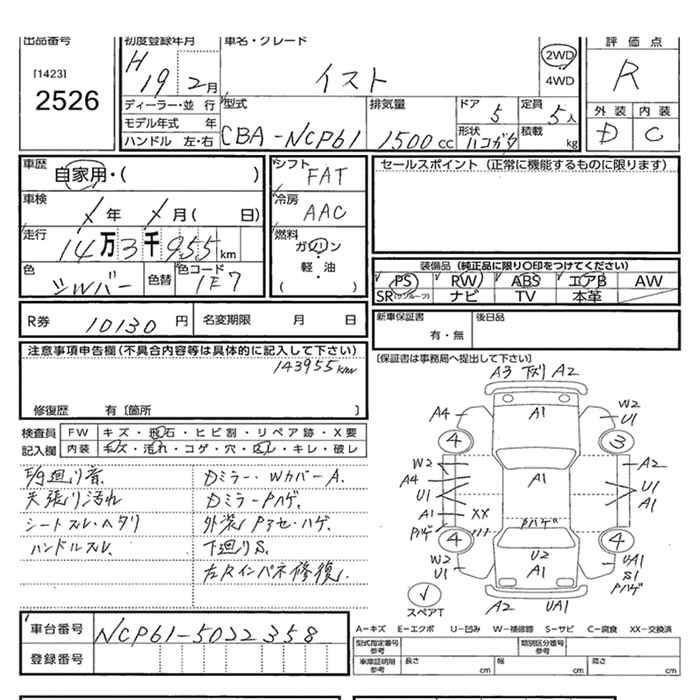 出品番号
[1423]
2526
初度登録年月
H 19年 2月
車名・グレード
イスト
2WD
4WD
評価点
R
外装 内装
D C
ディーラー・並行
モデル年式 年
ハンドル 左・右
型式
CBA-NCP61
排気量
1500 cc
ドア 5
定員 5人
形状 ハコガタ
積載 kg
車歴
自家用・( )
車検
年 月( 日)
走行
14万3千955km
色
シルバー
色替
色コード
1E7
シフト
FAT
冷房
AAC
燃料
ガソリン
軽・油
( )
セールスポイント (正常に機能するものに限ります)
装備品 (純正品に限り○印をつけてください)
PS RW ABS エアB AW
SR(サンルーフ) ナビ TV 本革
R券 10130 円
名変期限 月 日
新車保証書
有・無
後日品
[保証書は事務局へ提出して下さい]
注意事項申告欄(不具合内容等は具体的に記入して下さい)
143955km
修復歴 有〔箇所 〕
検査員
記入欄
FW キズ・飛石・ヒビ割・リペア跡・X要
内装 キズ・汚れ・コゲ・穴・スレ・キレ・破レ
天張り汚れ
シートスレ・ヘタリ
ハンドルスレ、
Dミラー・WカバーA.
DミラーPハゲ、
下廻りS.
左Rインパネ修復、
A3 下ズリ A2
A1
A4
W2
U1
4
3
W2
A4
U1
A1
Pハゲ
XX
A1
A2
U1
A1
Pハゲ
4
4
U2
A1
W2
U1
UA1
S1
Pハゲ
スペアT
A2
UA1
A-キズ E-エクボ U-凹み W-補修跡 S-サビ C-腐食 XX-交換済
車台番号
NCP61-5022358
登録番号
型式指定番号
参考
類別区分番号
参考
車庫証明用
参考
長さ cm
幅 cm
高さ cm